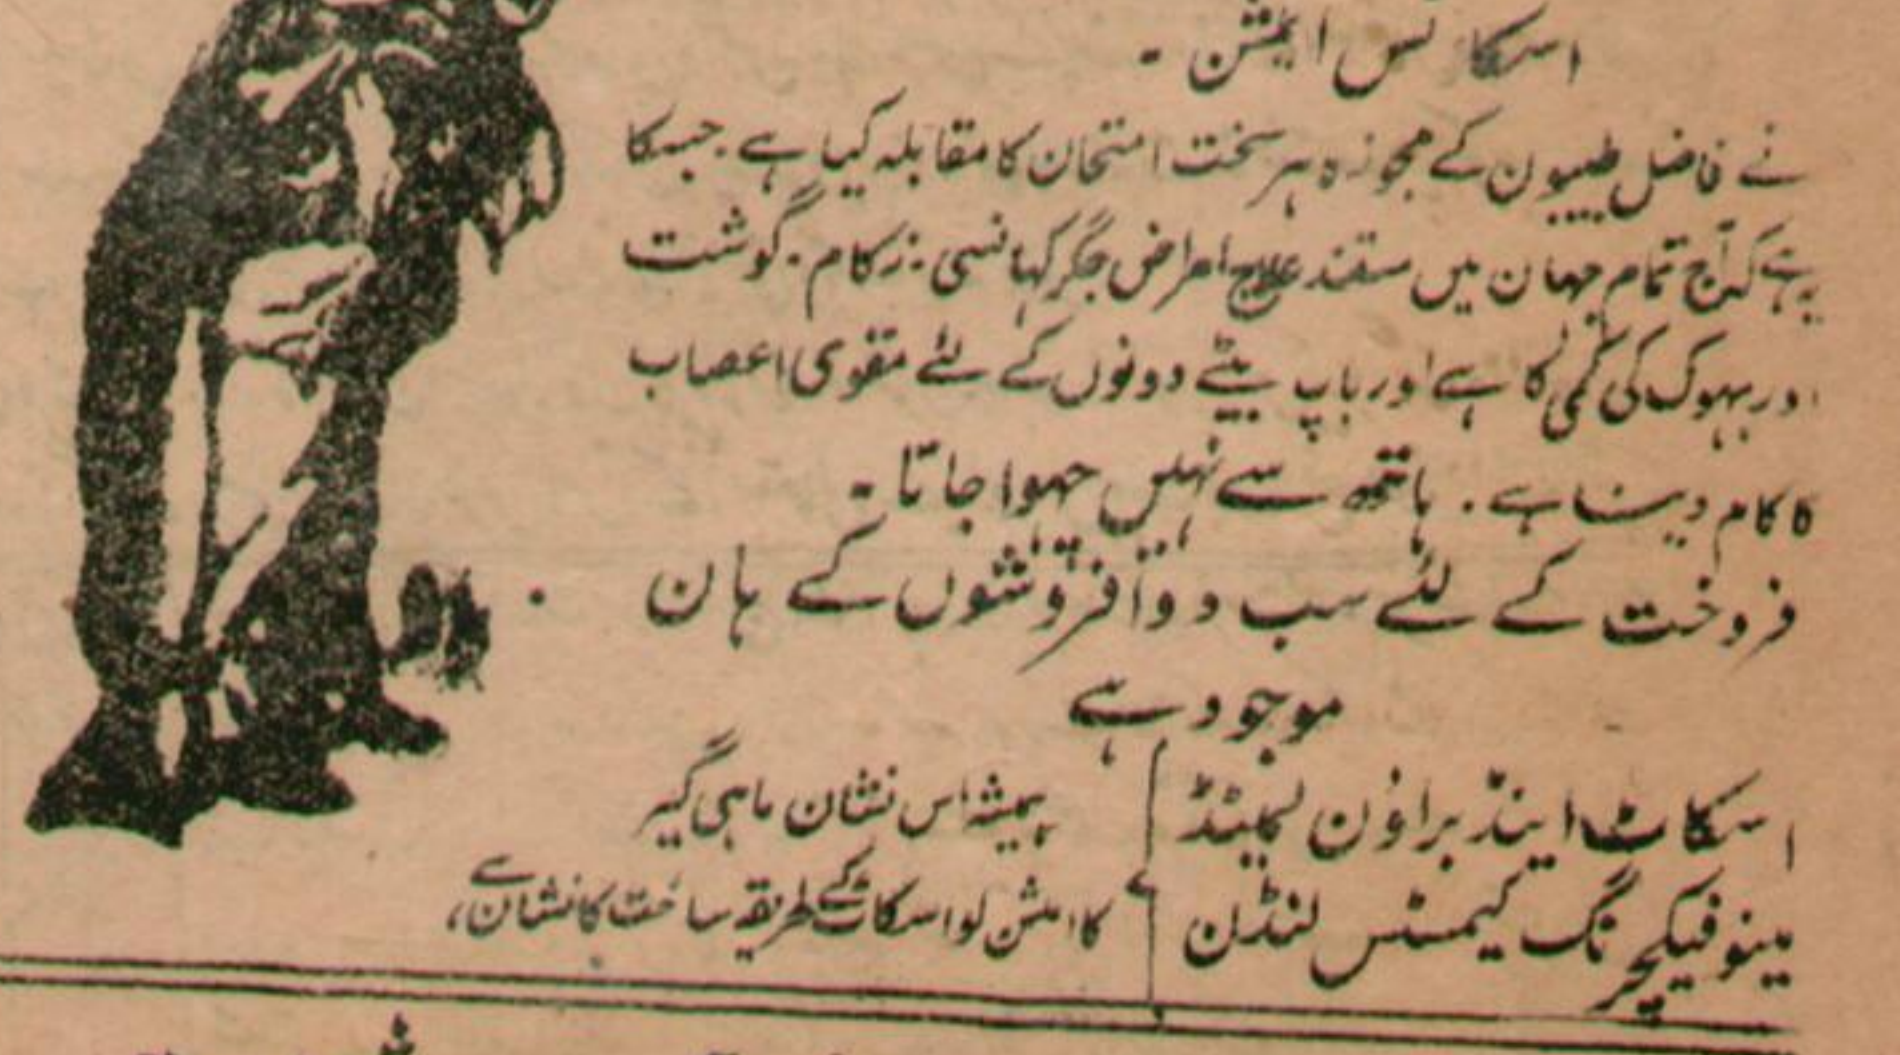 اسکاٹس ایملشن ۔
نے فاضل طبیبون کے مجوزہ ہر سخت امتحان کا مقابلہ کیا ہے ۔ جسکا
یہ ہے کہ آج تمام جہان میں مستند علاج امراض جگر کہانسی ۔ زکام ۔ گوشت
اور بہوک کی کمی کا ہے اور باپ بیٹے دونوں کے لئے مقوی اعصاب
کا کام دیتا ہے ۔ ہاتھہ سے نہیں چہوا جاتا ۔
فروخت کے لئے سب دوا فروشوں کے ہان
موجود ہے
اسکاٹ اینڈ براؤن لمیٹڈ
مینوفیکچرنگ کیمسٹس لنڈن
ہمیشہ اس نشان ماہی گیر
کا املشن لو اسکاٹ کے طریقہ ساخت کا نشان ہے